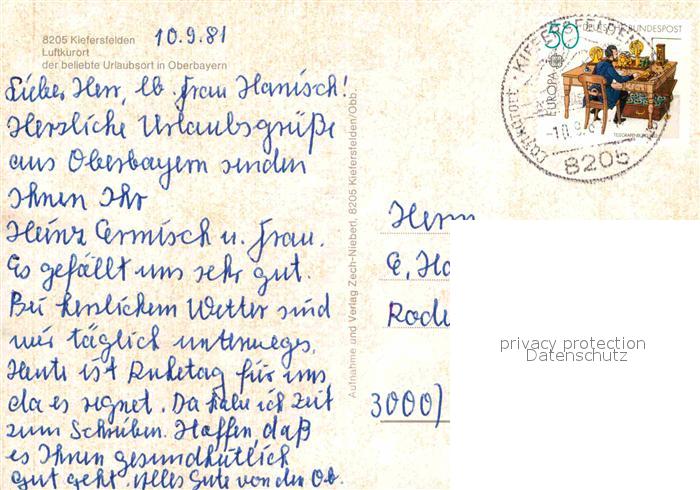 8205 Kiefersfelden
Luftkurort
der beliebte Urlaubsort in Oberbayern
10.9.81
Lieber Herr, lb. Frau Hanisch!
Herzliche Urlaubsgrüße
aus Oberbayern senden
Ihnen Ihr
Heinz Cermisch u. Frau.
Es gefällt uns sehr gut.
Bei herrlichem Wetter sind
wir täglich unterwegs.
Heute ist Ruhetag für uns
da es regnet. Da habe ich Zeit
zum Schreiben. Hoffen, daß
es Ihnen gesundheitlich
gut geht. Alles Gute von den Ob.
Aufnahme und Verlag Zech-Nieberl, 8205 Kiefersfelden/Obb.
50
DEUTSCHE BUNDESPOST
EUROPA
KIEFERSFELDEN
LUFTKURORT
8205
Herrn
E. Ha
Rode
3000)
privacy protection
Datenschutz